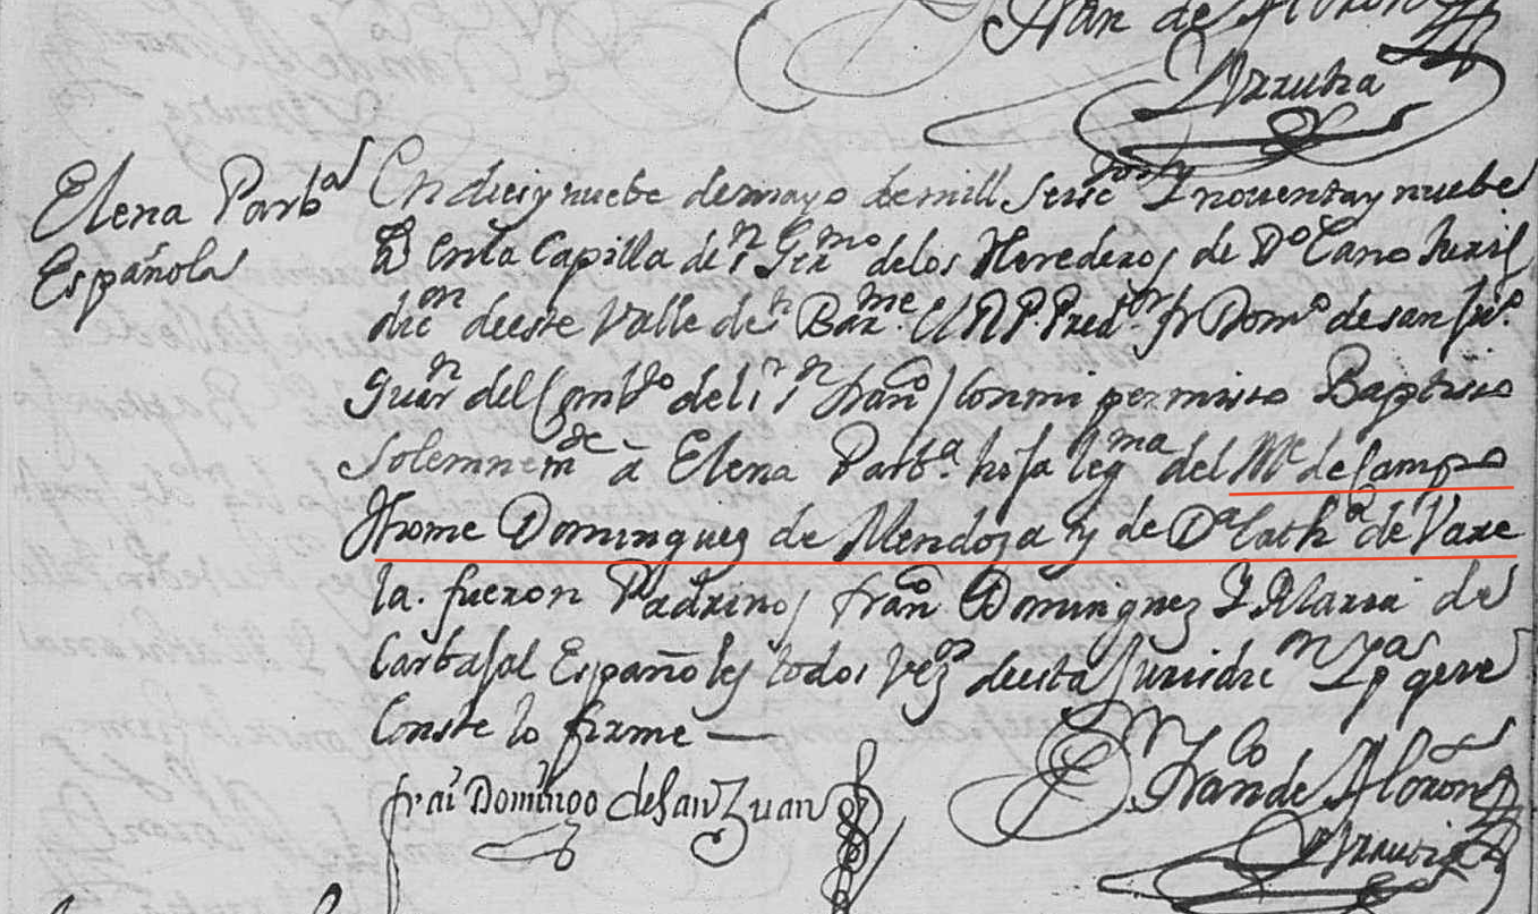 Fran de Aloron
Arrutia
Elena Barb.a
Española
En dies y nuebe de mayo de mill Seisc.tos y nouenta y nuebe
a.s en la Capilla de S.n Ger.mo de los Herederos de D.o Cano Jurisf
dic.on de este Valle de S.n Bar.me El R P. Pred.or fr Dom.o de san Ju.o
Guar.n del Comb.to del S.r S.n Fran.co con mi permisso Baptisso
Solemnem.te â Elena Barb.a hija leg.ma del M.e de Campo
Thome Dominguez de Mendoza y de D.a Cath.a de Vare
la. fueron Padrinos Fran.co Dominguez Y Maria de
Carbajal Españoles todos vez.os de esta Jurisdic.on Y p.a q.e
Conste lo firme —
frai Domingo de San Juan
Fran.co de Aloron
Arrutia